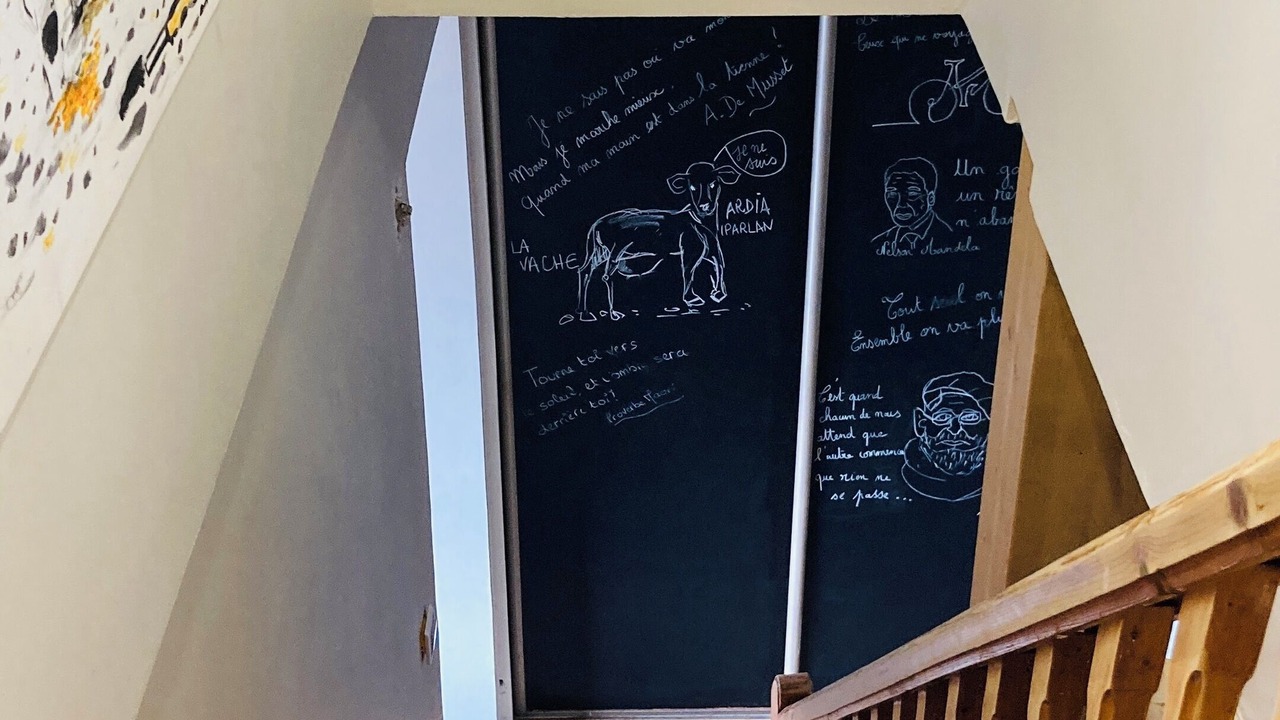 Je ne sais pas où va mon
Mais je marche mieux
quand ma main est dans la tienne !
A. De Musset
je ne
suis
LA
VACHE
ARDIA
IPARLAN
Tourne toi vers
soleil, et l'ombre sera
derrière toi !
Proverbe Maori
ceux qui ne voyag
Un ga
un rê
n'aban
Nelson Mandela
Tout seul on
Ensemble on va plu
C'est quand
chacun de nous
attend que
l'autre commence
que rien ne
se passe ...